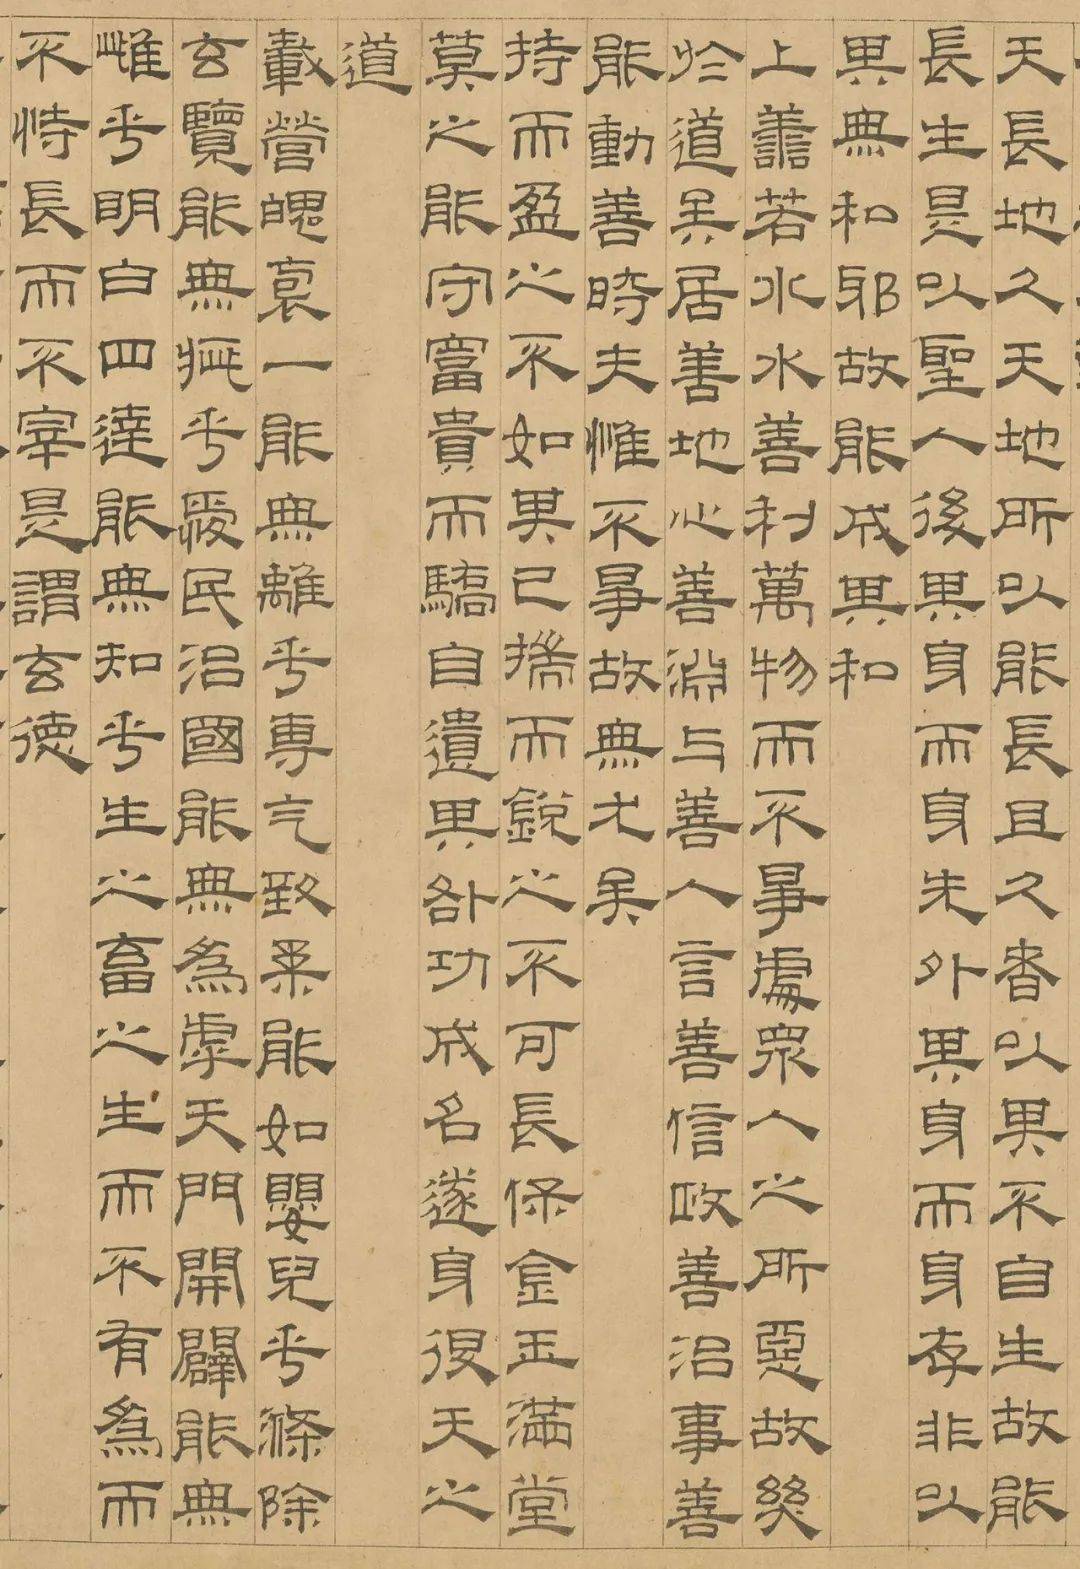 天長地久天地所以能長且久者以其不自生故能
長生是以聖人後其身而身先外其身而身存非以
其無私邪故能成其私
上善若水水善利萬物而不爭處眾人之所惡故幾
於道矣居善地心善淵与善人言善信政善治事善
能動善時夫惟不爭故無尤矣
持而盈之不如其已揣而銳之不可長保金玉滿堂
莫之能守富貴而驕自遺其咎功成名遂身退天之
道
載營魄裒一能無離乎專气致柔能如嬰兒乎滌除
玄覽能無疵乎愛民治國能無為虖天門開闢能無
雌乎明白四達能無知乎生之畜之生而不有為而
不恃長而不宰是謂玄德